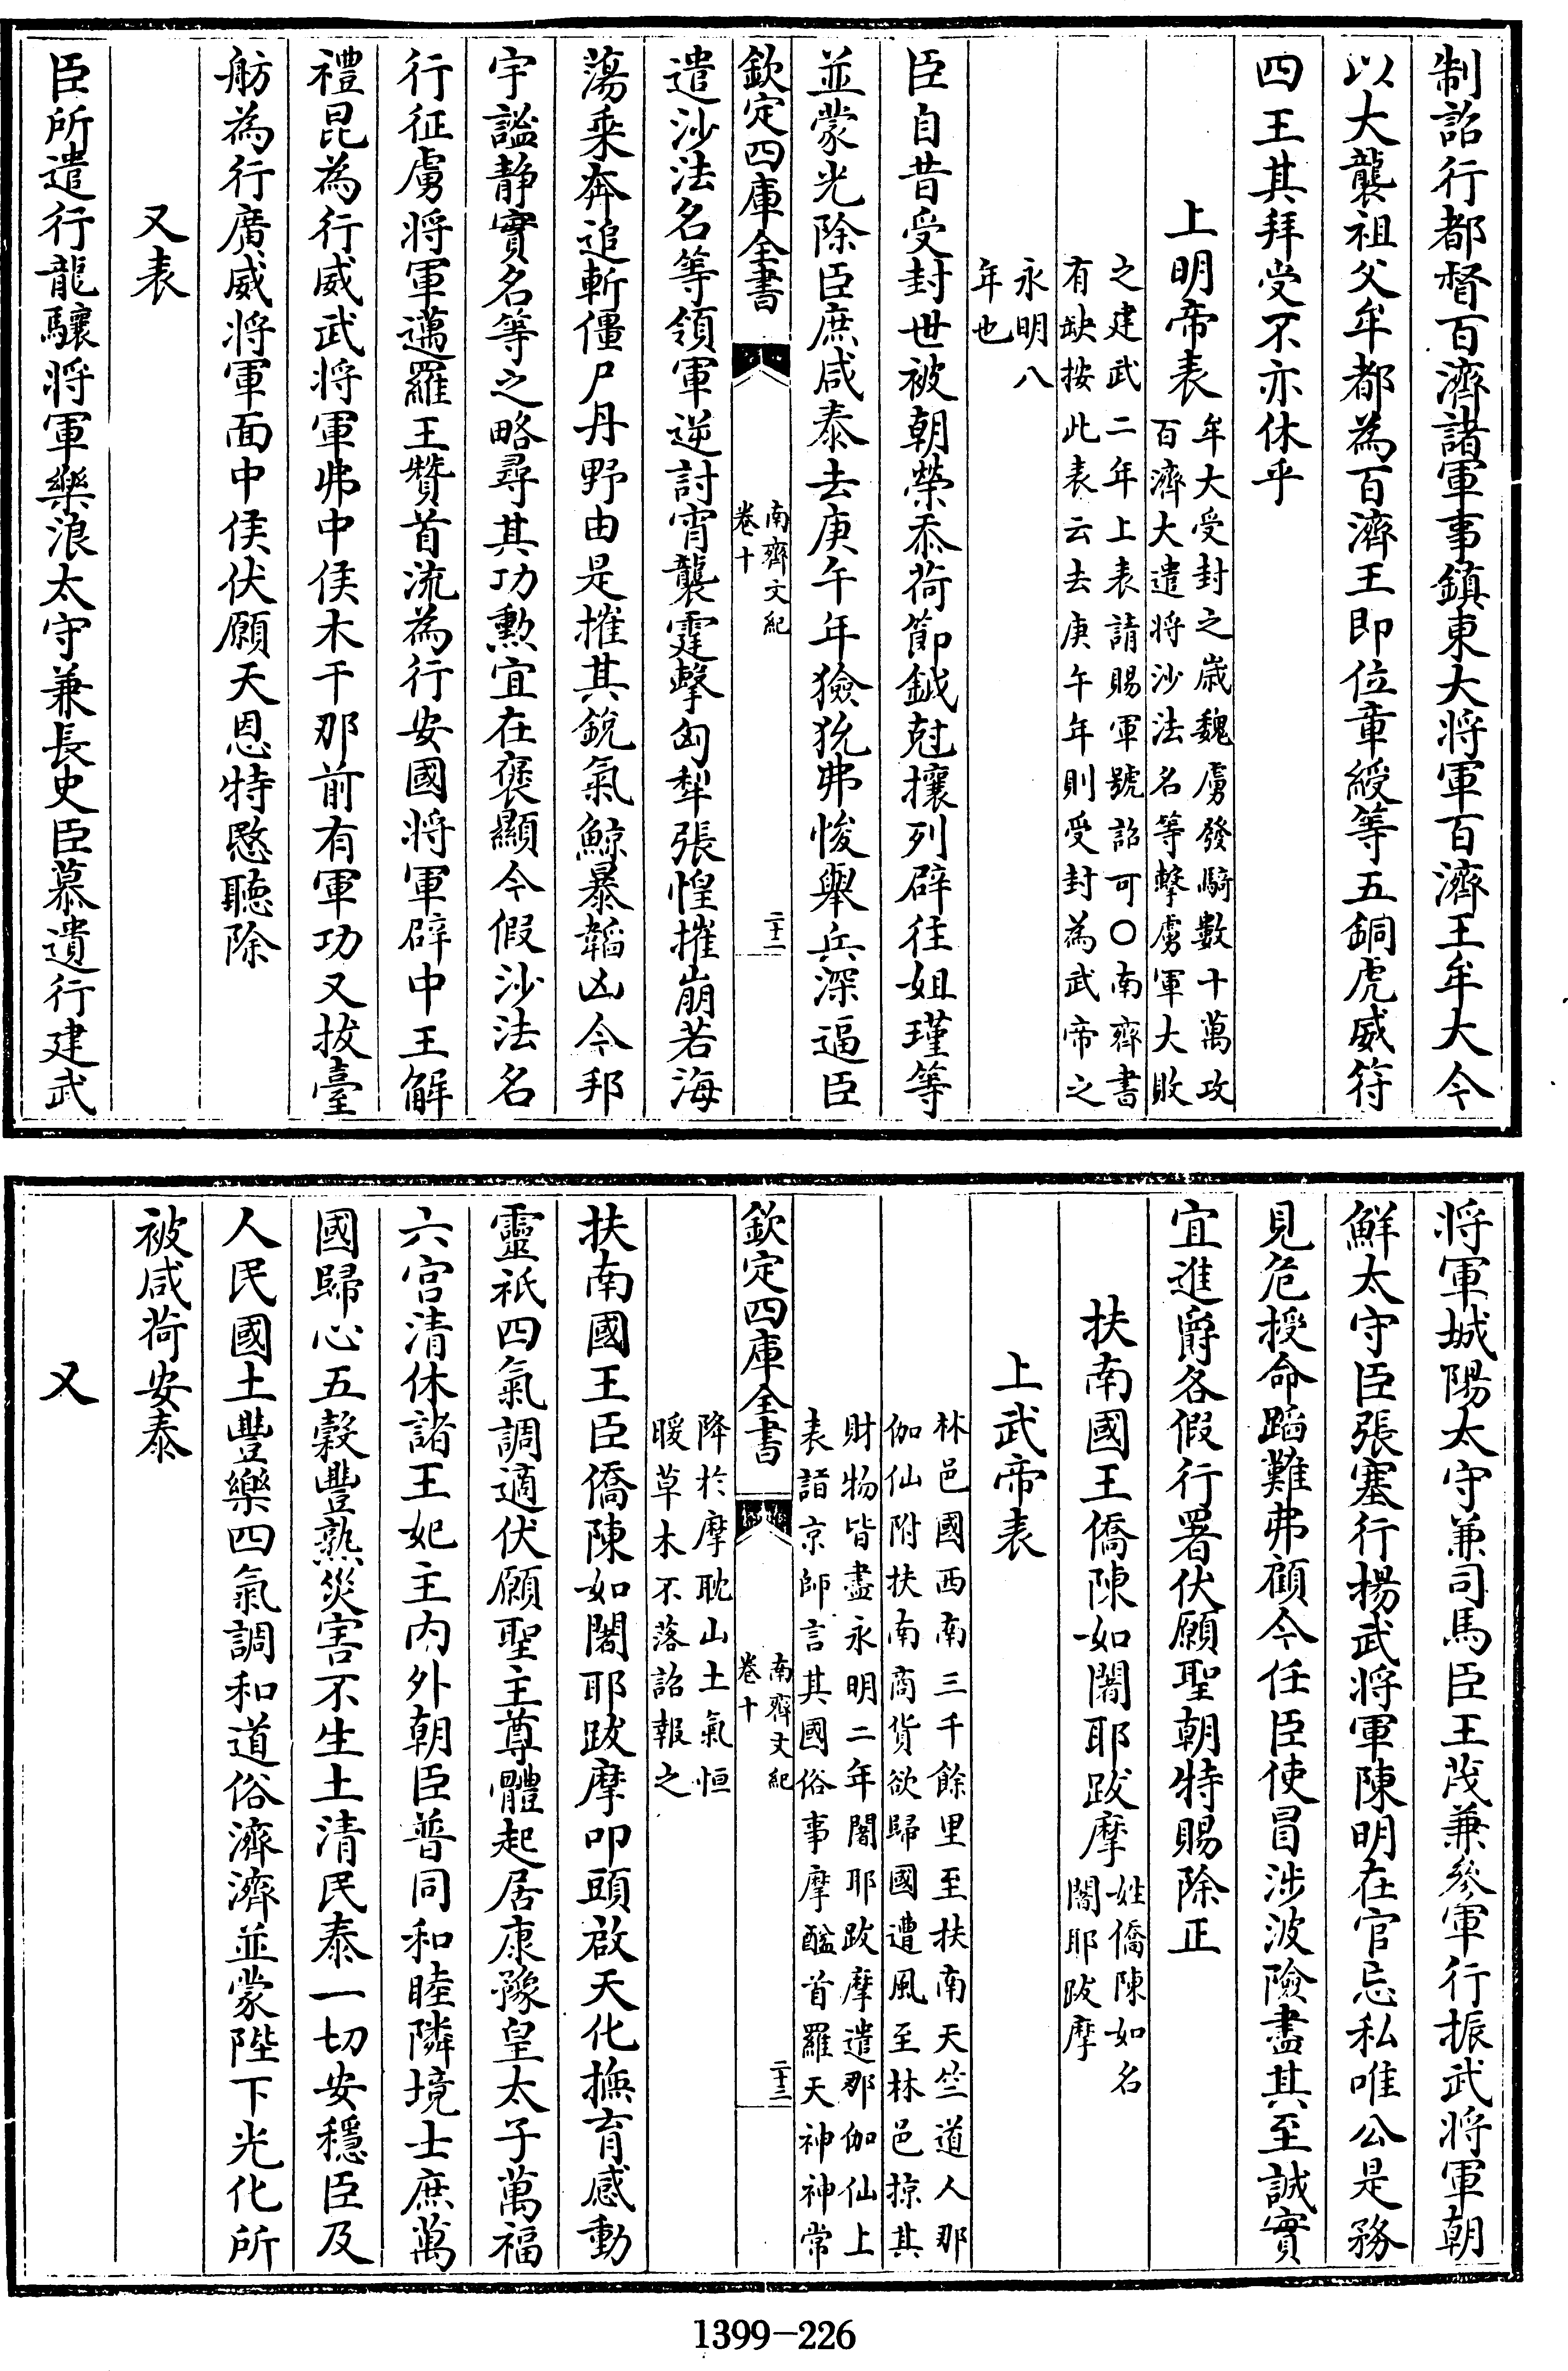 制詔行都督百濟諸軍事鎮東大將軍百濟王牟大今
以大襲祖父牟都為百濟王即位章綬等五銅虎威符
四王其拜受不亦休乎
上明帝表
牟大受封之嵗魏虜發騎數十萬攻
百濟大遣將沙法名等擊虜軍大敗
之建武二年上表請賜軍號詔可○南齊書
有缺按此表云去庚午年則受封為武帝之
永明八
年也
臣自昔受封世被朝榮忝荷節鉞尅攘列辟往姐瑾等
並蒙光除臣庶咸泰去庚午年獫狁弗悛舉兵深逼臣
欽定四庫全書
南齊文紀
卷十
二十二
遣沙法名等領軍逆討宵襲霆擊匈犁張惶摧崩若海
蕩乘奔追斬僵尸丹野由是摧其銳氣鯨暴韜凶今邦
宇謐靜實名等之略尋其功勲宜在褒顯今假沙法名
行征虜將軍邁羅王贊首流為行安國將軍辟中王解
禮昆為行威武將軍弗中侯木干那前有軍功又拔臺
舫為行廣威將軍面中侯伏願天恩特愍聽除
又表
臣所遣行龍驤將軍樂浪太守兼長史臣慕遺行建武
將軍城陽太守兼司馬臣王茂兼參軍行振武將軍朝
鮮太守臣張塞行揚武將軍陳明在官忘私唯公是務
見危授命蹈難弗顧今任臣使冒涉波險盡其至誠實
宜進爵各假行署伏願聖朝特賜除正
扶南國王僑陳如闍耶跋摩
姓僑陳如名
闍耶跋摩
上武帝表
林邑國西南三千餘里至扶南天竺道人那
伽仙附扶南商貨欲歸國遭風至林邑掠其
財物皆盡永明二年闍耶跋摩遣那伽仙上
表詣京師言其國俗事摩醯首羅天神神常
欽定四庫全書
南齊文紀
卷十
二十三
降於摩耽山土氣恒
暖草木不落詔報之
扶南國王臣僑陳如闍耶跋摩叩頭啟天化撫育感動
靈祇四氣調適伏願聖主尊體起居康豫皇太子萬福
六宮清休諸王妃主內外朝臣普同和睦隣境士庶萬
國歸心五穀豐熟災害不生土清民泰一切安穩臣及
人民國土豐樂四氣調和道俗濟濟並蒙陛下光化所
被咸荷安泰
又
1399-226